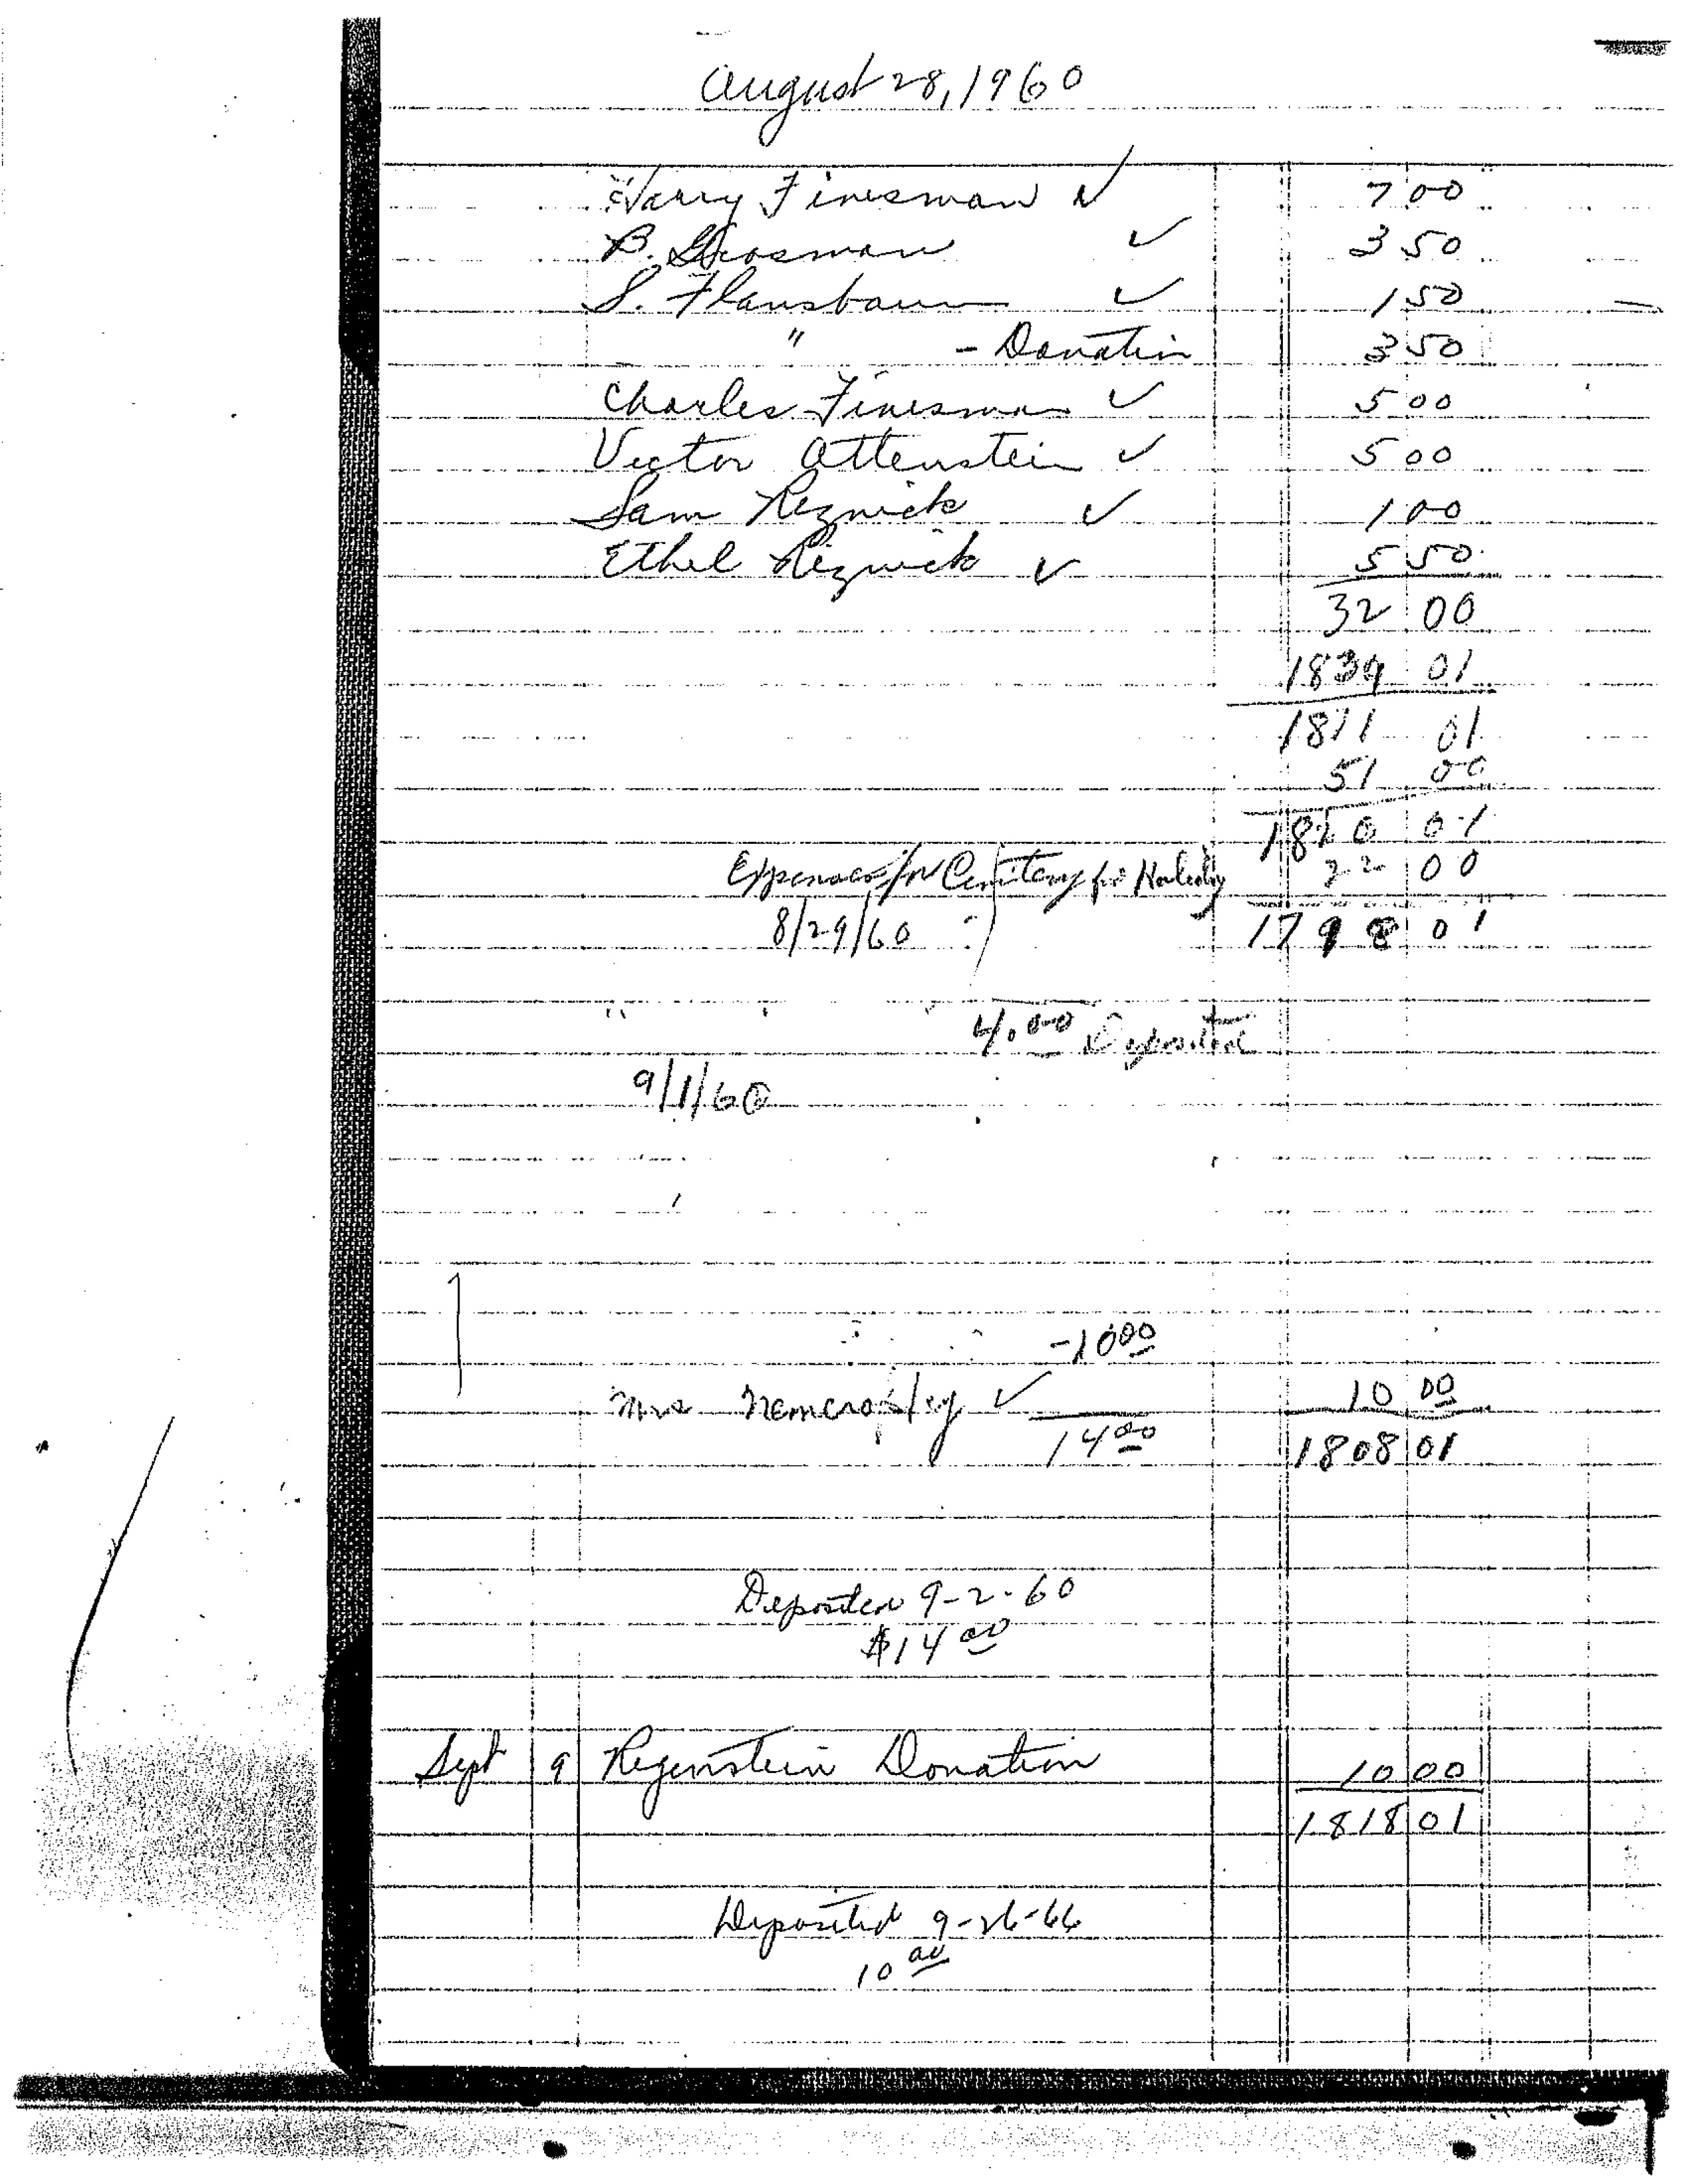 August 28, 1960
Harry Finesman ✓ 7 00
B. Grosman ✓ 3 50
S. Flansbaum ✓ 1 50
" - Donation 3 50
Charles Finesman ✓ 5 00
Victor Ottenstein ✓ 5 00
Sam Reznick ✓ 1 00
Ethel Reznick ✓ 5 50
32 00
1839 01
1871 01
51 00
1820 01
Expenses for Cemitery for Holiday 22 00
8/29/60 1798 01
4.00 Deposited
9/1/60
-10 00
Mrs ✓ 10 00
14 00 1808 01
Deposited 9-2-60
$14 00
Sept 9 Regenstein Donation 10 00
1818 01
Deposited 9-26-66
10 00